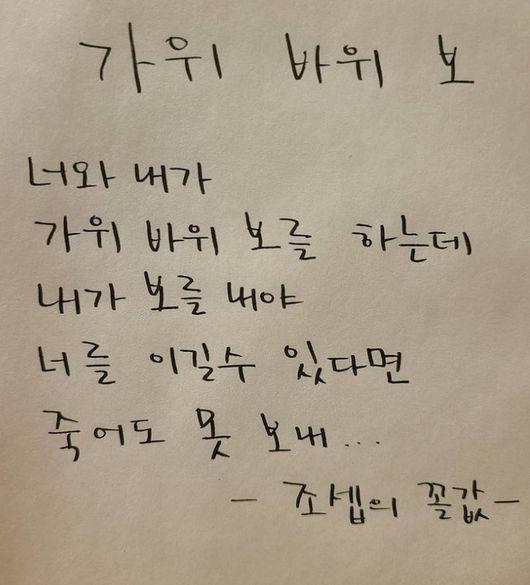 가위 바위 보
너와 내가
가위 바위 보를 하는데
내가 보를 내야
너를 이길수 있다면
죽어도 못 보내...
- 조셉의 꼴값-